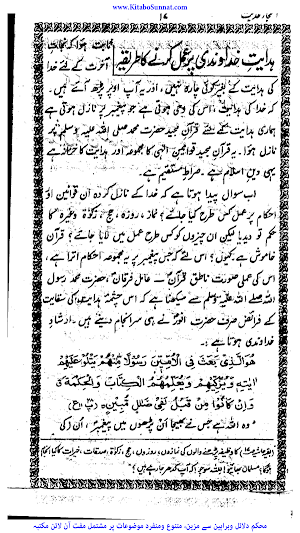 www.KitaboSunnat.com
۱۷
ہدایت خداوندی پر عمل کرنے کا طریقہ
ثابت ہوا کہ نجات
آخرت کے لئے خدا
کی ہدایت کے بغیر کوئی چارہ نہیں، اور یہ آپ اوپر پڑھ آئے ہیں۔
کہ خدا کی ہدایت، اس کی وحی ہوتی ہے جو پیغمبر پر نازل ہوتی ہے
ہماری ہدایت کے لئے قرآن مجید حضرت محمد صلی اللہ علیہ وسلم پر
نازل ہوا۔ یہ قرآن مجید قوانین الٰہی کا مجموعہ اور ہدایت کا خزانہ ہے
یہی دین اسلام ہے۔ صراط مستقیم ہے۔
اب سوال پیدا ہوتا ہے کہ خدا کے نازل کردہ ان قوانین او
احکام پر عمل کس طرح کیا جائے؟ نماز، روزہ، حج، زکوٰۃ وغیرہ کا
حکم تو دیدیا لیکن ان چیزوں کو کس طرح عمل میں لایا جائے؟ قرآن
خاموش ہے، کیوں؟ اس لئے کہ جس پیغمبر پر یہ مجموعہ احکام اترا ہے،
اس کی عملی صورت ناطق قرآن — عامل فرقان، حضرت محمد رسول
اللہ صلے اللہ علیہ وسلم سے سیکھنا ہے کہ اس چشمۂ ہدایت کی سقایت
کے فرائض صرف حضرت انور ہی سرانجام دیتے ہیں۔ ارشاد
خداوندی ہوتا ہے:
هُوَ الَّذِیْ بَعَثَ فِی الْاُمِّیّٖنَ رَسُوْلًا مِّنْهُمْ یَتْلُوْا عَلَیْهِمْ
اٰیٰتِهٖ وَیُزَكِّیْهِمْ وَیُعَلِّمُهُمُ الْكِتٰبَ وَالْحِكْمَةَ
وَاِنْ كَانُوْا مِنْ قَبْلُ لَفِیْ ضَلٰلٍ مُّبِیْنٍ
وہ اللہ ہے جس نے بھیجا ان پڑھوں میں پیغمبر، ان کی
محکم دلائل وبراہین سے مزین، متنوع ومنفرد موضوعات پر مشتمل مفت آن لائن مکتبہ